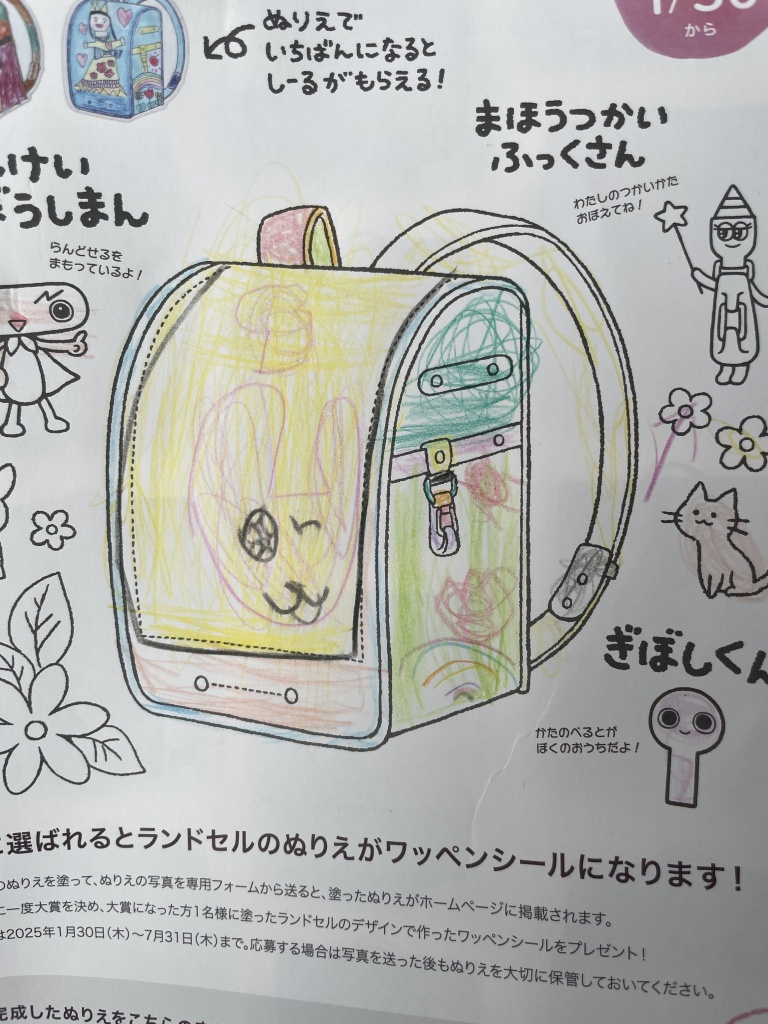 から
ぬりえで
いちばんになると
しーるがもらえる!
まほうつかい
ふっくさん
わたしのつかいかた
おぼえてね!
けい
うしまん
らんどせるを
まもっているよ!
ぎぼしくん
かたのべるとが
ぼくのおうちだよ!
選ばれるとランドセルのぬりえがワッペンシールになります!
ぬりえを塗って、ぬりえの写真を専用フォームから送ると、塗ったぬりえがホームページに掲載されます。
一度大賞を決め、大賞になった方1名様に塗ったランドセルのデザインで作ったワッペンシールをプレゼント!
は2025年1月30日(木)〜7月31日(木)まで。応募する場合は写真を送った後もぬりえを大切に保管しておいてください。
完成したぬりえをこちらの